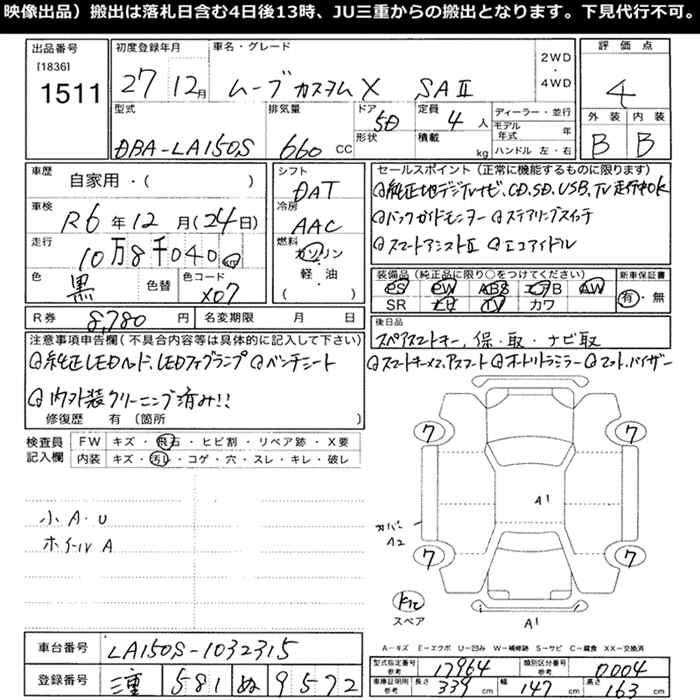 映像出品）搬出は落札日含む4日後13時、JU三重からの搬出となります。下見代行不可。
出品番号
[1836]
1511
初度登録年月
27 12月
車名・グレード
ムーブカスタムX SAⅡ
2WD
・
4WD
評価点
4
外装 内装
B B
型式
DBA-LA150S
排気量
660 CC
ドア
5D
形状
定員
4 人
積載
kg
ディーラー・並行
モデル年式 年
ハンドル 左・右
車歴
自家用・( )
車検
R6年12月(24日)
走行
10万8千040 km
色
黒
色替
色コード
X07
シフト
DAT
冷房
AAC
燃料
ガソリン
軽・油
( )
セールスポイント（正常に機能するものに限ります）
純正地デジナビ、CD、SD、USB、TV走行中OK
バックガイドモニター ステアリングスイッチ
スマートアシストⅡ エコアイドル
装備品（純正品に限り○をつけてください）
PS PW ABS エアB AW
SR ナビ TV カワ
新車保証書
有・無
R券 8,780円
名変期限 月 日
後日品
スペアスマートキー、保・取・ナビ取
注意事項申告欄（不具合内容等は具体的に記入して下さい）
純正LEDヘッド、LEDフォグランプ ベンチシート
スマートキー×2、アスフート オートリトラミラー マット、バイザー
内外装クリーニング済み!!
修復歴 有（箇所 ）
検査員記入欄
FW キズ・飛石・ヒビ割・リペア跡・X要
内装 キズ・汚レ・コゲ・穴・スレ・キレ・破レ
小A・U
ホイールA
7 7
7 7
A1
カバー
A2
スペア
A1
A－キズ E－エクボ U－凹み W－補修跡 S－サビ C－腐食 XX－交換済
車台番号 LA150S-1032315
登録番号 三重 581 ぬ 9572
型式指定番号 参考 17964
類別区分番号 参考 0004
車庫証明用 参考 長さ 339 cm 幅 147 cm 高さ 163 cm